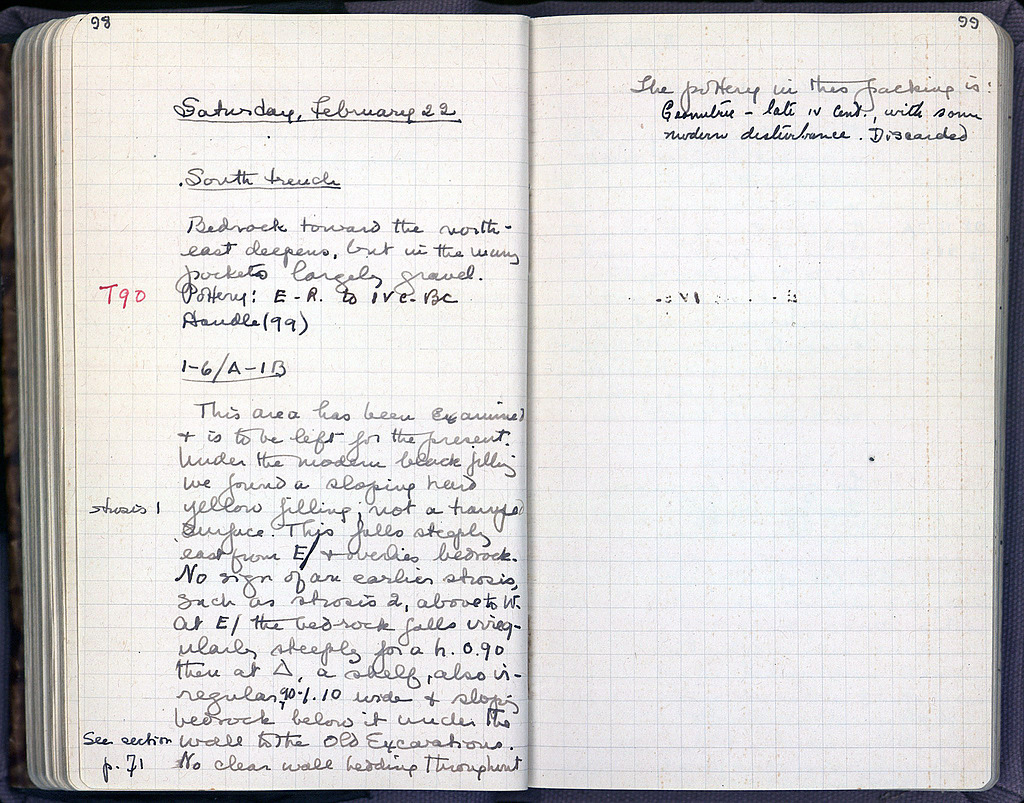 98
Saturday, February 22
South trench
Bedrock toward the north-
east deepens, but in the many
pockets largely gravel.
T90
Pottery: E-R. to IVc-BC
Handle (99)
1-6/A-1B
This area has been examined
+ is to be left for the present.
Under the modern black filling
we found a sloping hard
strosis 1
yellow filling; not a tramped
surface. This falls steeply
east from E/ + overlies bedrock.
No sign of an earlier strosis,
such as strosis 2, above to W.
At E/ the bedrock falls irreg-
ularly steeply for a h. 0.90
then at Δ, a shelf, also ir-
regular, 90-1.10 wide + sloping
bedrock below it under the
See section
wall to the Old Excavations.
p. 71
No clear wall bedding throughout
99
The pottery in this packing is:
Geometric - late IV cent., with some
modern disturbance. Discarded